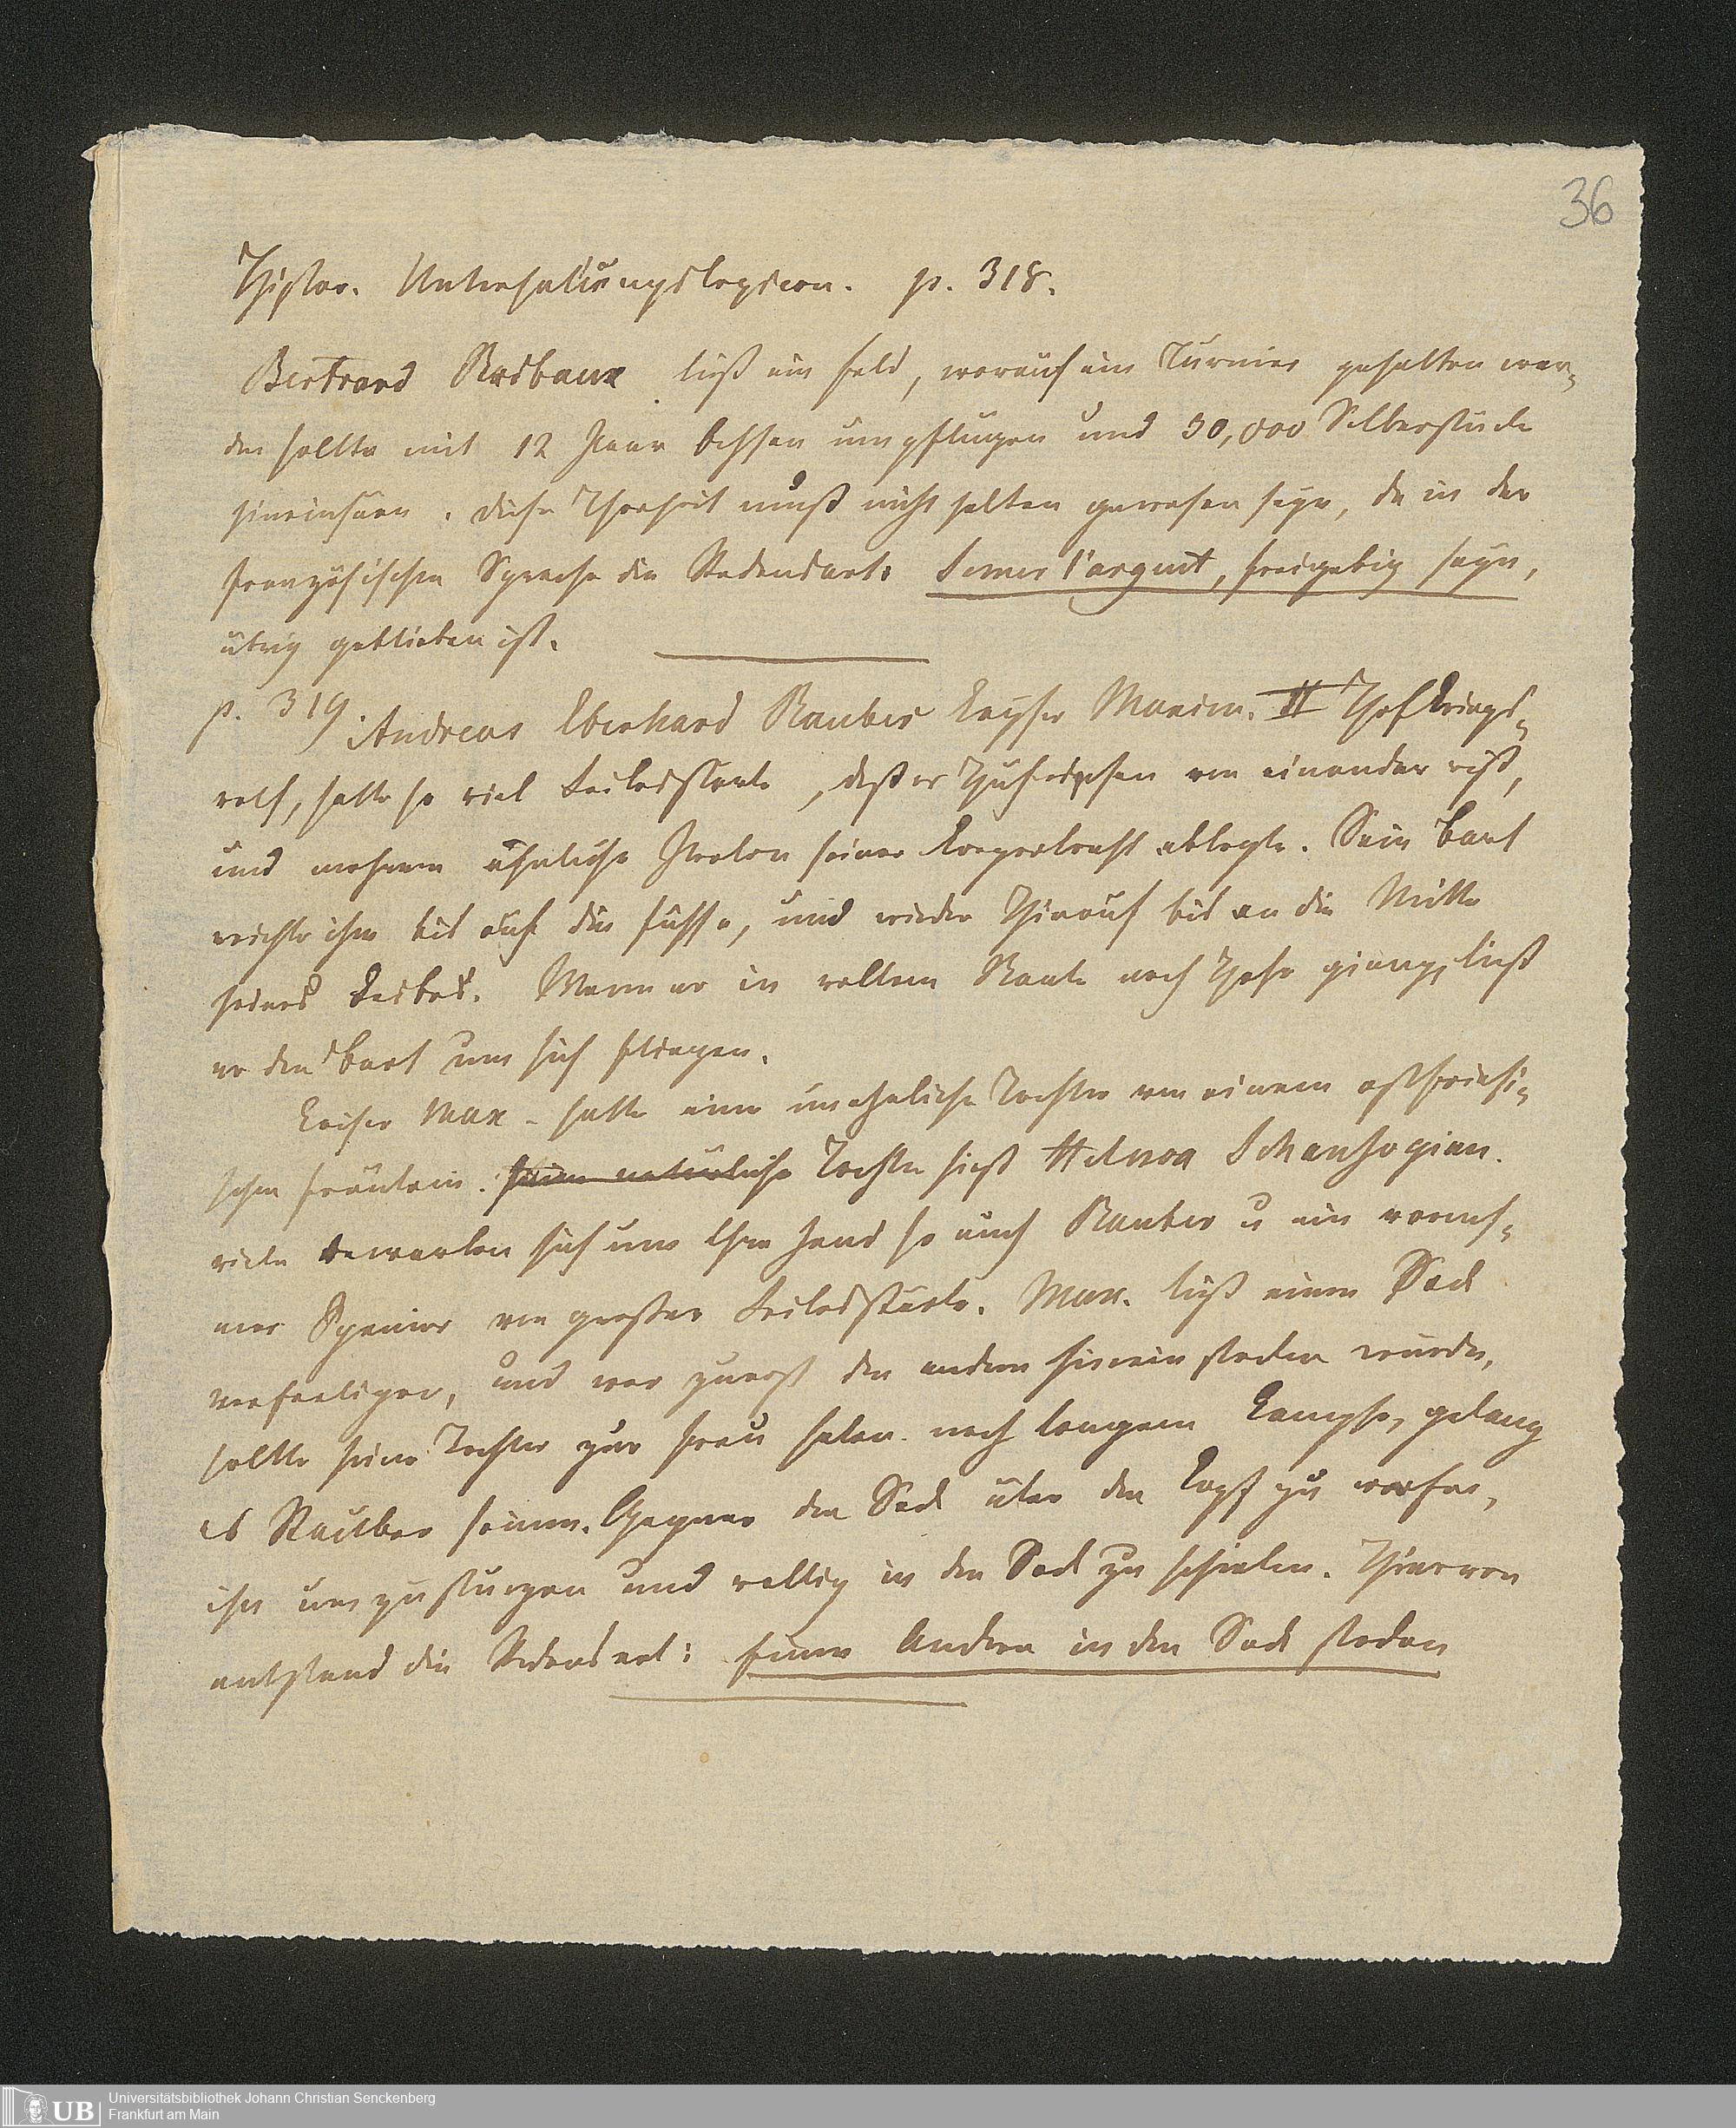 36
Histor. Unterhaltungslexicon. p. 318.
Bertrand Raibaux ließ ein Feld, worauf ein Turnier gehalten wer-
den sollte mit 12 Paar Ochsen umpflügen und 30,000 Silberstücke
hineinsäen. Diese Thorheit muß nicht selten gewesen seyn, da in der
französischen Sprache die Redensart: Semer l'argent, freigebig seyn,
übrig geblieben ist.
p. 319. Andreas Eberhard Rauber Kayser Maxim. II Hofkriegs-
rath, hatte so viel Leibesstärke, daß er Hufeisen von einander riß,
und mehrere ähnliche Proben seiner Körperkraft ablegte. Sein Bart
reichte ihm bis auf die Füsse, und wieder Hinauf bis an die Mitte
seines Leibes. Wenn er in vollem Staate nach Hofe gieng, ließ
er den Bart um sich fliegen.
Kaiser Max - hatte eine uneheliche Tochter von einem ostfriesi-
schen Fräulein. seine natürliche Tochter hieß Helena Scharseginn.
viele bewarben sich um Ihre Hand so auch Rauber u ein vorneh-
mer Spanier von großer Leibesstärke. Max. ließ einen Sack
verfertigen, und wer zuerst den andern hineinstecken würde,
sollte seine Tochter zur Frau haben. nach langem Kampfe, gelang
es Rauber seinem Gegner den Sack über den Kopf zu werfen,
ihn umzustürzen und vollig in den Sack zu schieben. Hiervon
entstand die Redensart: Einen Andern in den Sack stecken
Universitätsbibliothek Johann Christian Senckenberg
UB Frankfurt am Main